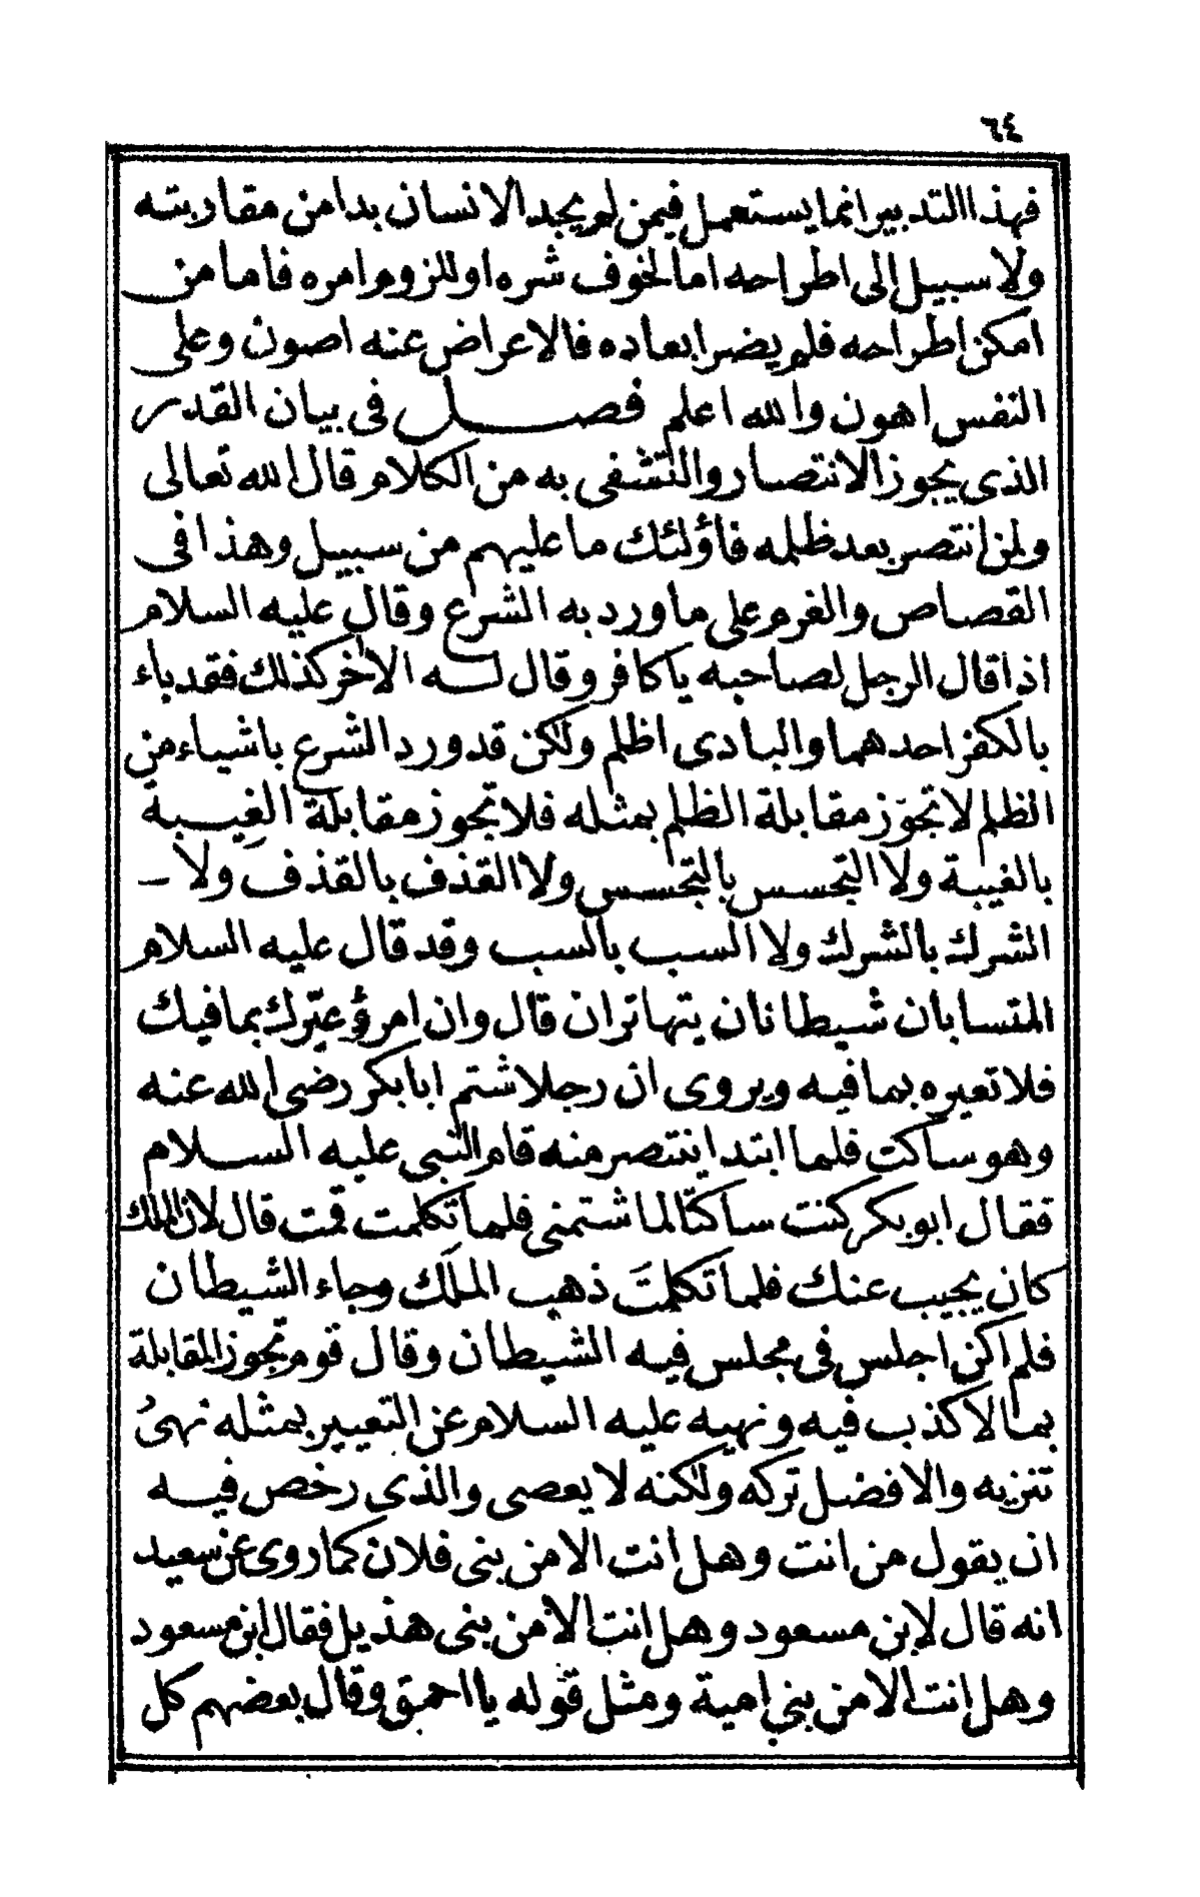 ٦٤
فهذا التدبير انما يستعمل فيمن لم يجد الانسان بدا من مقاربته
ولا سبيل الى اطراحه اما لخوف شره او للزوم امره فاما من
امكن اطراحه فلم يضر ابعاده فالاعراض عنه اصون وعلى
النفس اهون والله اعلم فصــل فى بيان القدر
الذى يجوز الانتصار والتشفى به من الكلام قال الله تعالى
ولمن انتصر بعد ظلمه فاؤلئك ما عليهم من سبيل وهذا فى
القصاص والغرم على ما ورد به الشرع وقال عليه السلام
اذا قال الرجل لصاحبه يا كافر وقال لـه الاخر كذلك فقد باء
بالكفر احدهما والبادى اظلم ولكن قد ورد الشرع باشياء من
الظلم لا تجوّز مقابلة الظلم بمثله فلا تجوز مقابلة الغِيبة
بالغيبة ولا التجسس بالتجسس ولا القذف بالقذف ولا ـ
الشرك بالشرك ولا السب بالسب وقد قال عليه السلام
المتسابان شيطانان يتهاتران قال وان امرؤ عيّرك بما فيك
فلا تعيره بما فيه ويروى ان رجلا شتم ابا بكر رضى الله عنه
وهو ساكت فلما ابتدا ينتصر منه قام النبى عليه الســلام
فقال ابو بكر كنت ساكتًا لما شتمنى فلما تكلمت قمت قال لان الملك
كان يجيب عنك فلما تكلمتَ ذهب الملَك وجاء الشيطان
فلم اكن اجلس فى مجلس فيه الشيطان وقال قوم تجوز المقابلة
بما لا كذب فيه ونهيه عليه السلام عن التعيير بمثله نهىُ
تنزيه والافضل تركه ولكنه لا يعصى والذى رخص فيــه
ان يقول من انت وهل انت الا من بنى فلان كما روى عن سعيد
انه قال لابن مسعود وهل انت الا من بنى هذيل فقال ابن مسعود
وهل انت الا من بنى امية ومثل قوله يا احمق وقال بعضهم كل